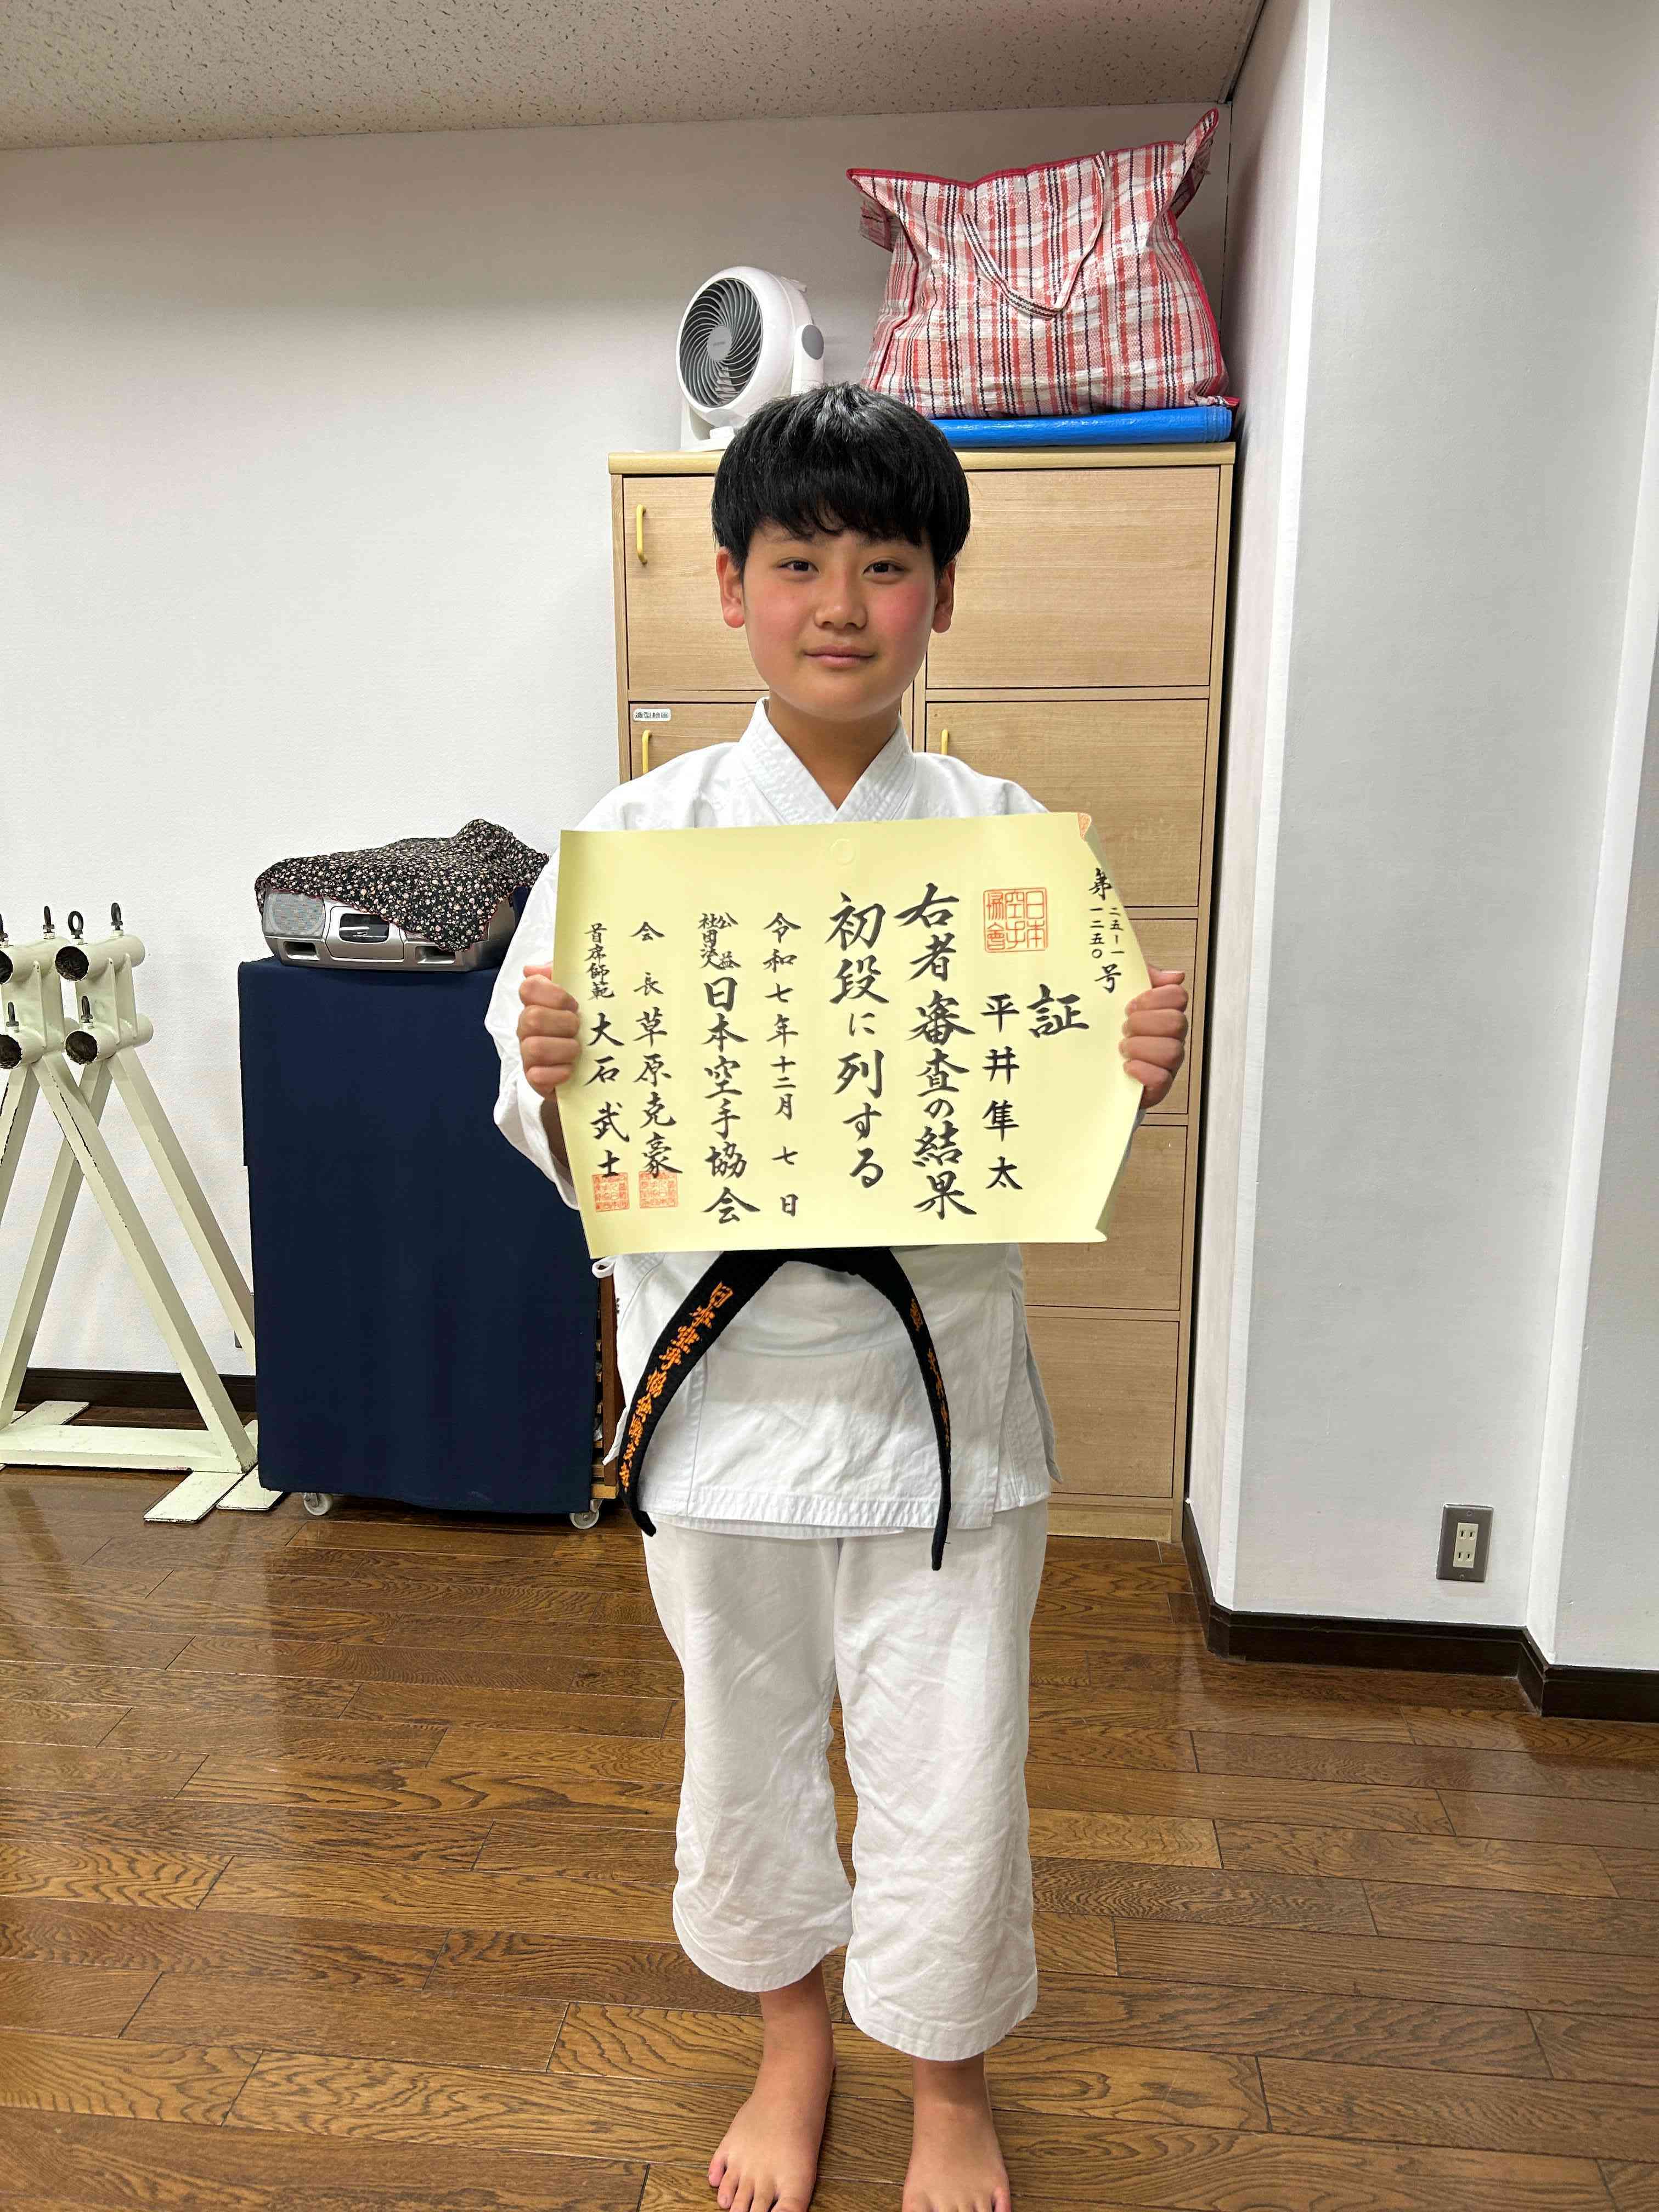 第二五-一一二五〇号
証
日本空手協會
平井隼太
右者審査の結果
初段に列する
令和七年十二月七日
公益社団法人日本空手協会
会長草原克豪
首席師範大石武士
造型絵画
日本空手協会